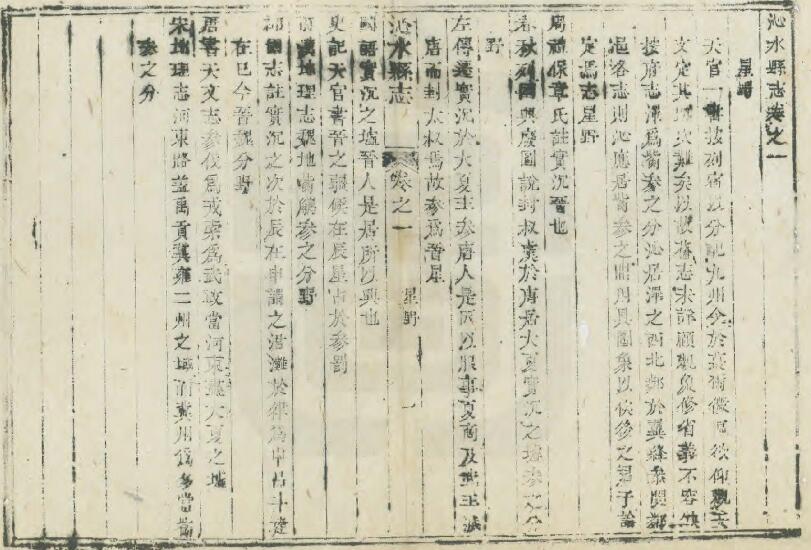 沁水縣志卷之一
星野
天官一書按列宿以分記九州分於
文定其次難矣以故舊志未詳顧觀象修省義不容缺
按府志澤爲觜參之分沁居澤之西北鄰於冀絳
邑名志則沁應居觜參之間用具圖象以俟後之君子論
定焉志星野
周禮保章氏註實沉晉也
春秋列國興廢圖說封叔虞於唐居大夏實沉之墟參之分
野
左傳遷實沉於大夏主參唐人是因以服事夏商及武王滅
唐而封太叔焉故參爲晉星
沁水縣志 卷之一 星野 一
國語實沉之墟晉人是居所以興也
史記天官書晉之疆候在辰星占於參罰
前漢地理志魏地觜觿參之分野
郡國志註實沉之次於辰在申謂之涒灘於律爲中呂斗建
在巳今晉魏分野
唐書天文志參伐爲戎索爲武政當河東盡大夏之墟
宋地理志河東路蓋禹貢冀雍二州之域而冀州爲多當觜
參之分